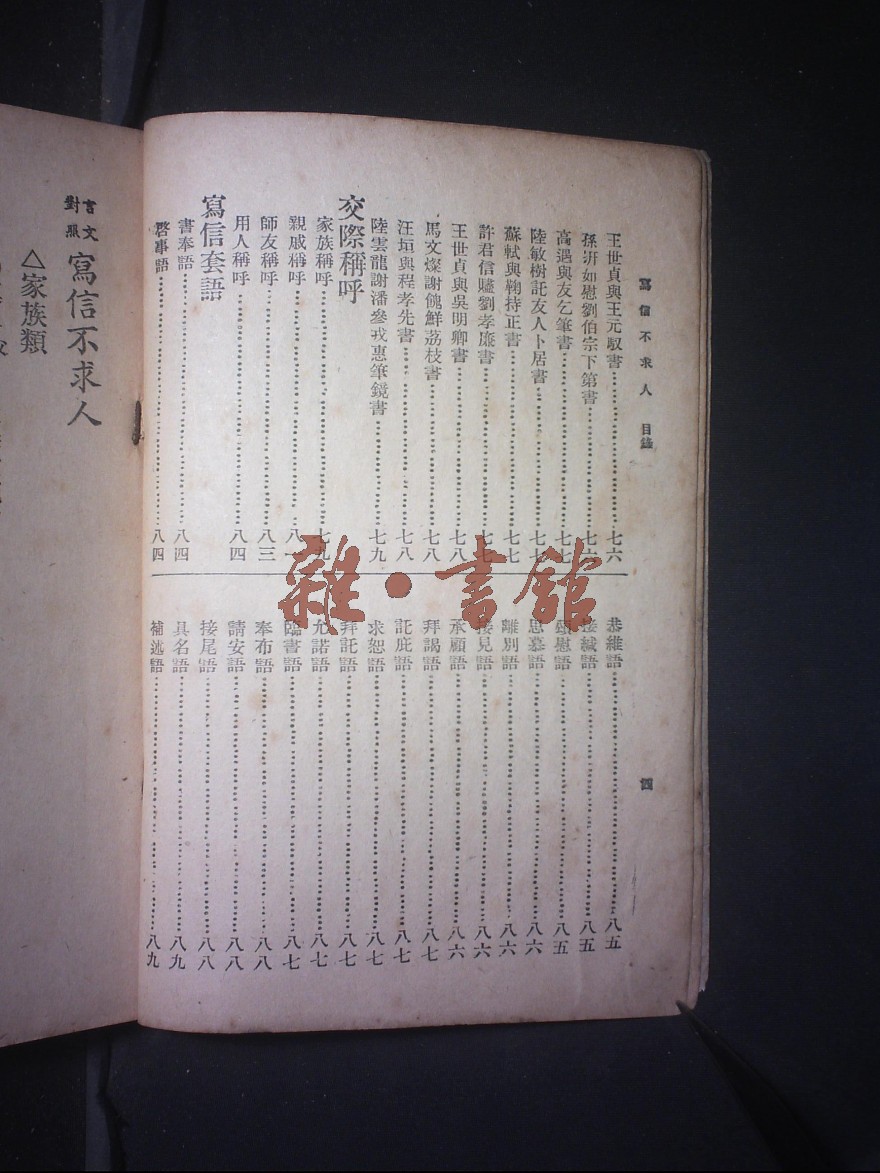 寫信不求人 目錄
四
王世貞與王元馭書……七六
孫枅如慰劉伯宗下第書……七六
高遇與友乞筆書……七七
陸敏樹託友人卜居書……七七
蘇軾與鞠持正書……七七
許君信贐劉孝廉書……七七
王世貞與吳明卿書……七八
馬文燦謝餽鮮荔枝書……七八
汪垣與程孝先書……七八
陸雲龍謝潘參戎惠筆鏡書……七九
交際稱呼
家族稱呼……七九
親戚稱呼……八一
師友稱呼……八三
用人稱呼……八四
寫信套語
書奉語……八四
啓事語……八四
恭維語……八五
接緘語……八五
頌慰語……八五
思慕語……八六
離別語……八六
接見語……八六
承顧語……八六
拜謁語……八七
託庇語……八七
求恕語……八七
拜託語……八七
允諾語……八七
臨書語……八七
奉布語……八八
請安語……八八
接尾語……八八
具名語……八九
補述語……八九
雜·書館
言文對照 寫信不求人
△家族類